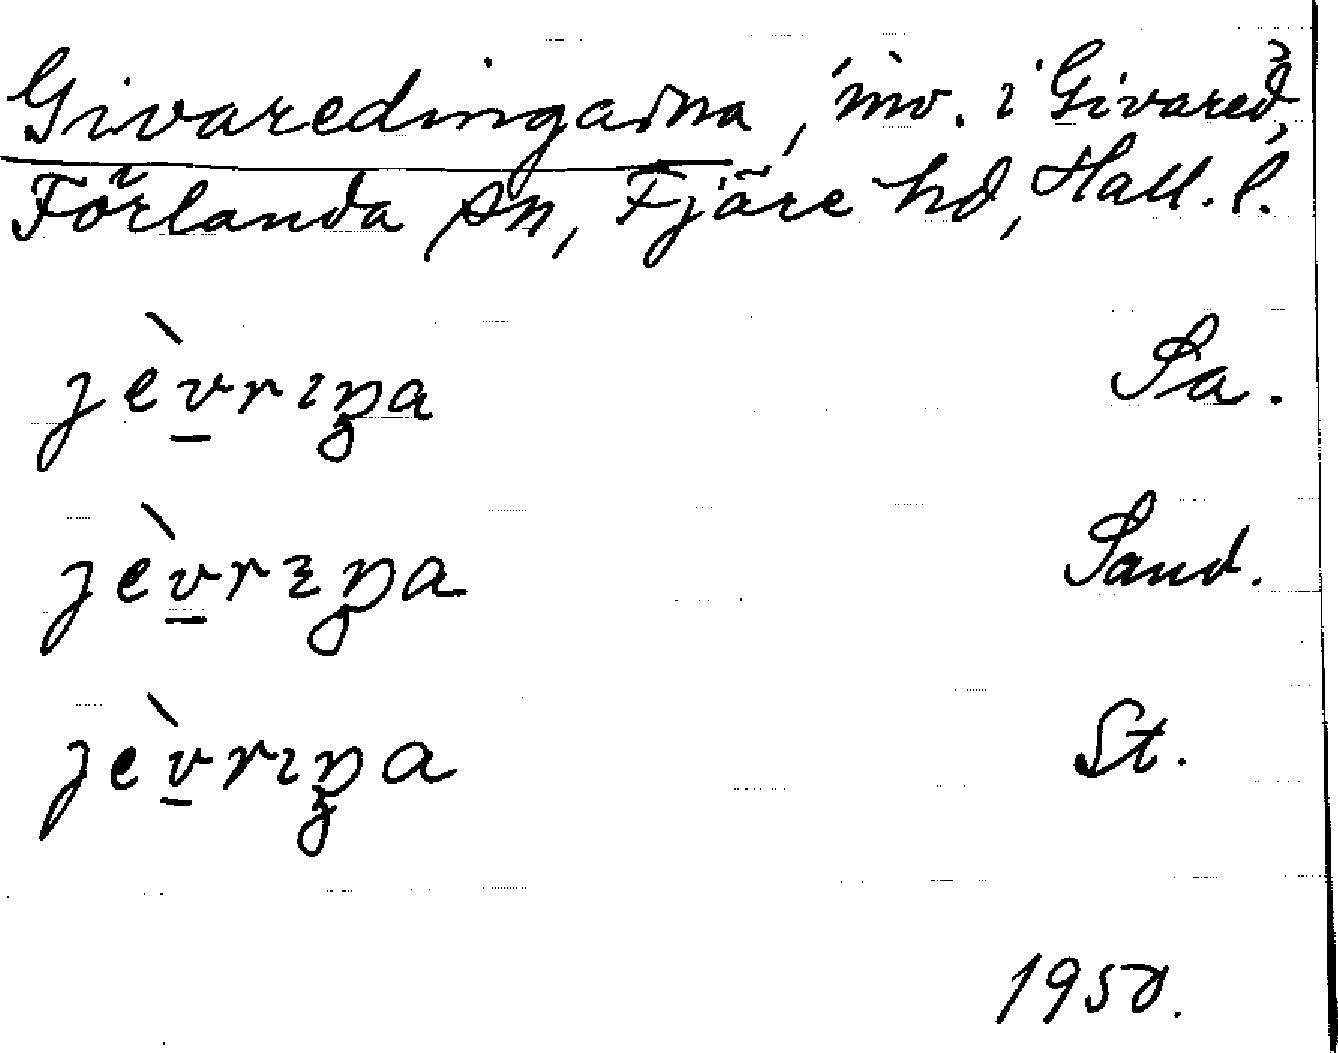 Givaredingarna, inv. i Givared,
Förlanda sn, Fjäre hd, Hall. l.
jèvrıŋa Sa.
jèvrɛŋa Sand.
jèvrıŋa St.
1950.